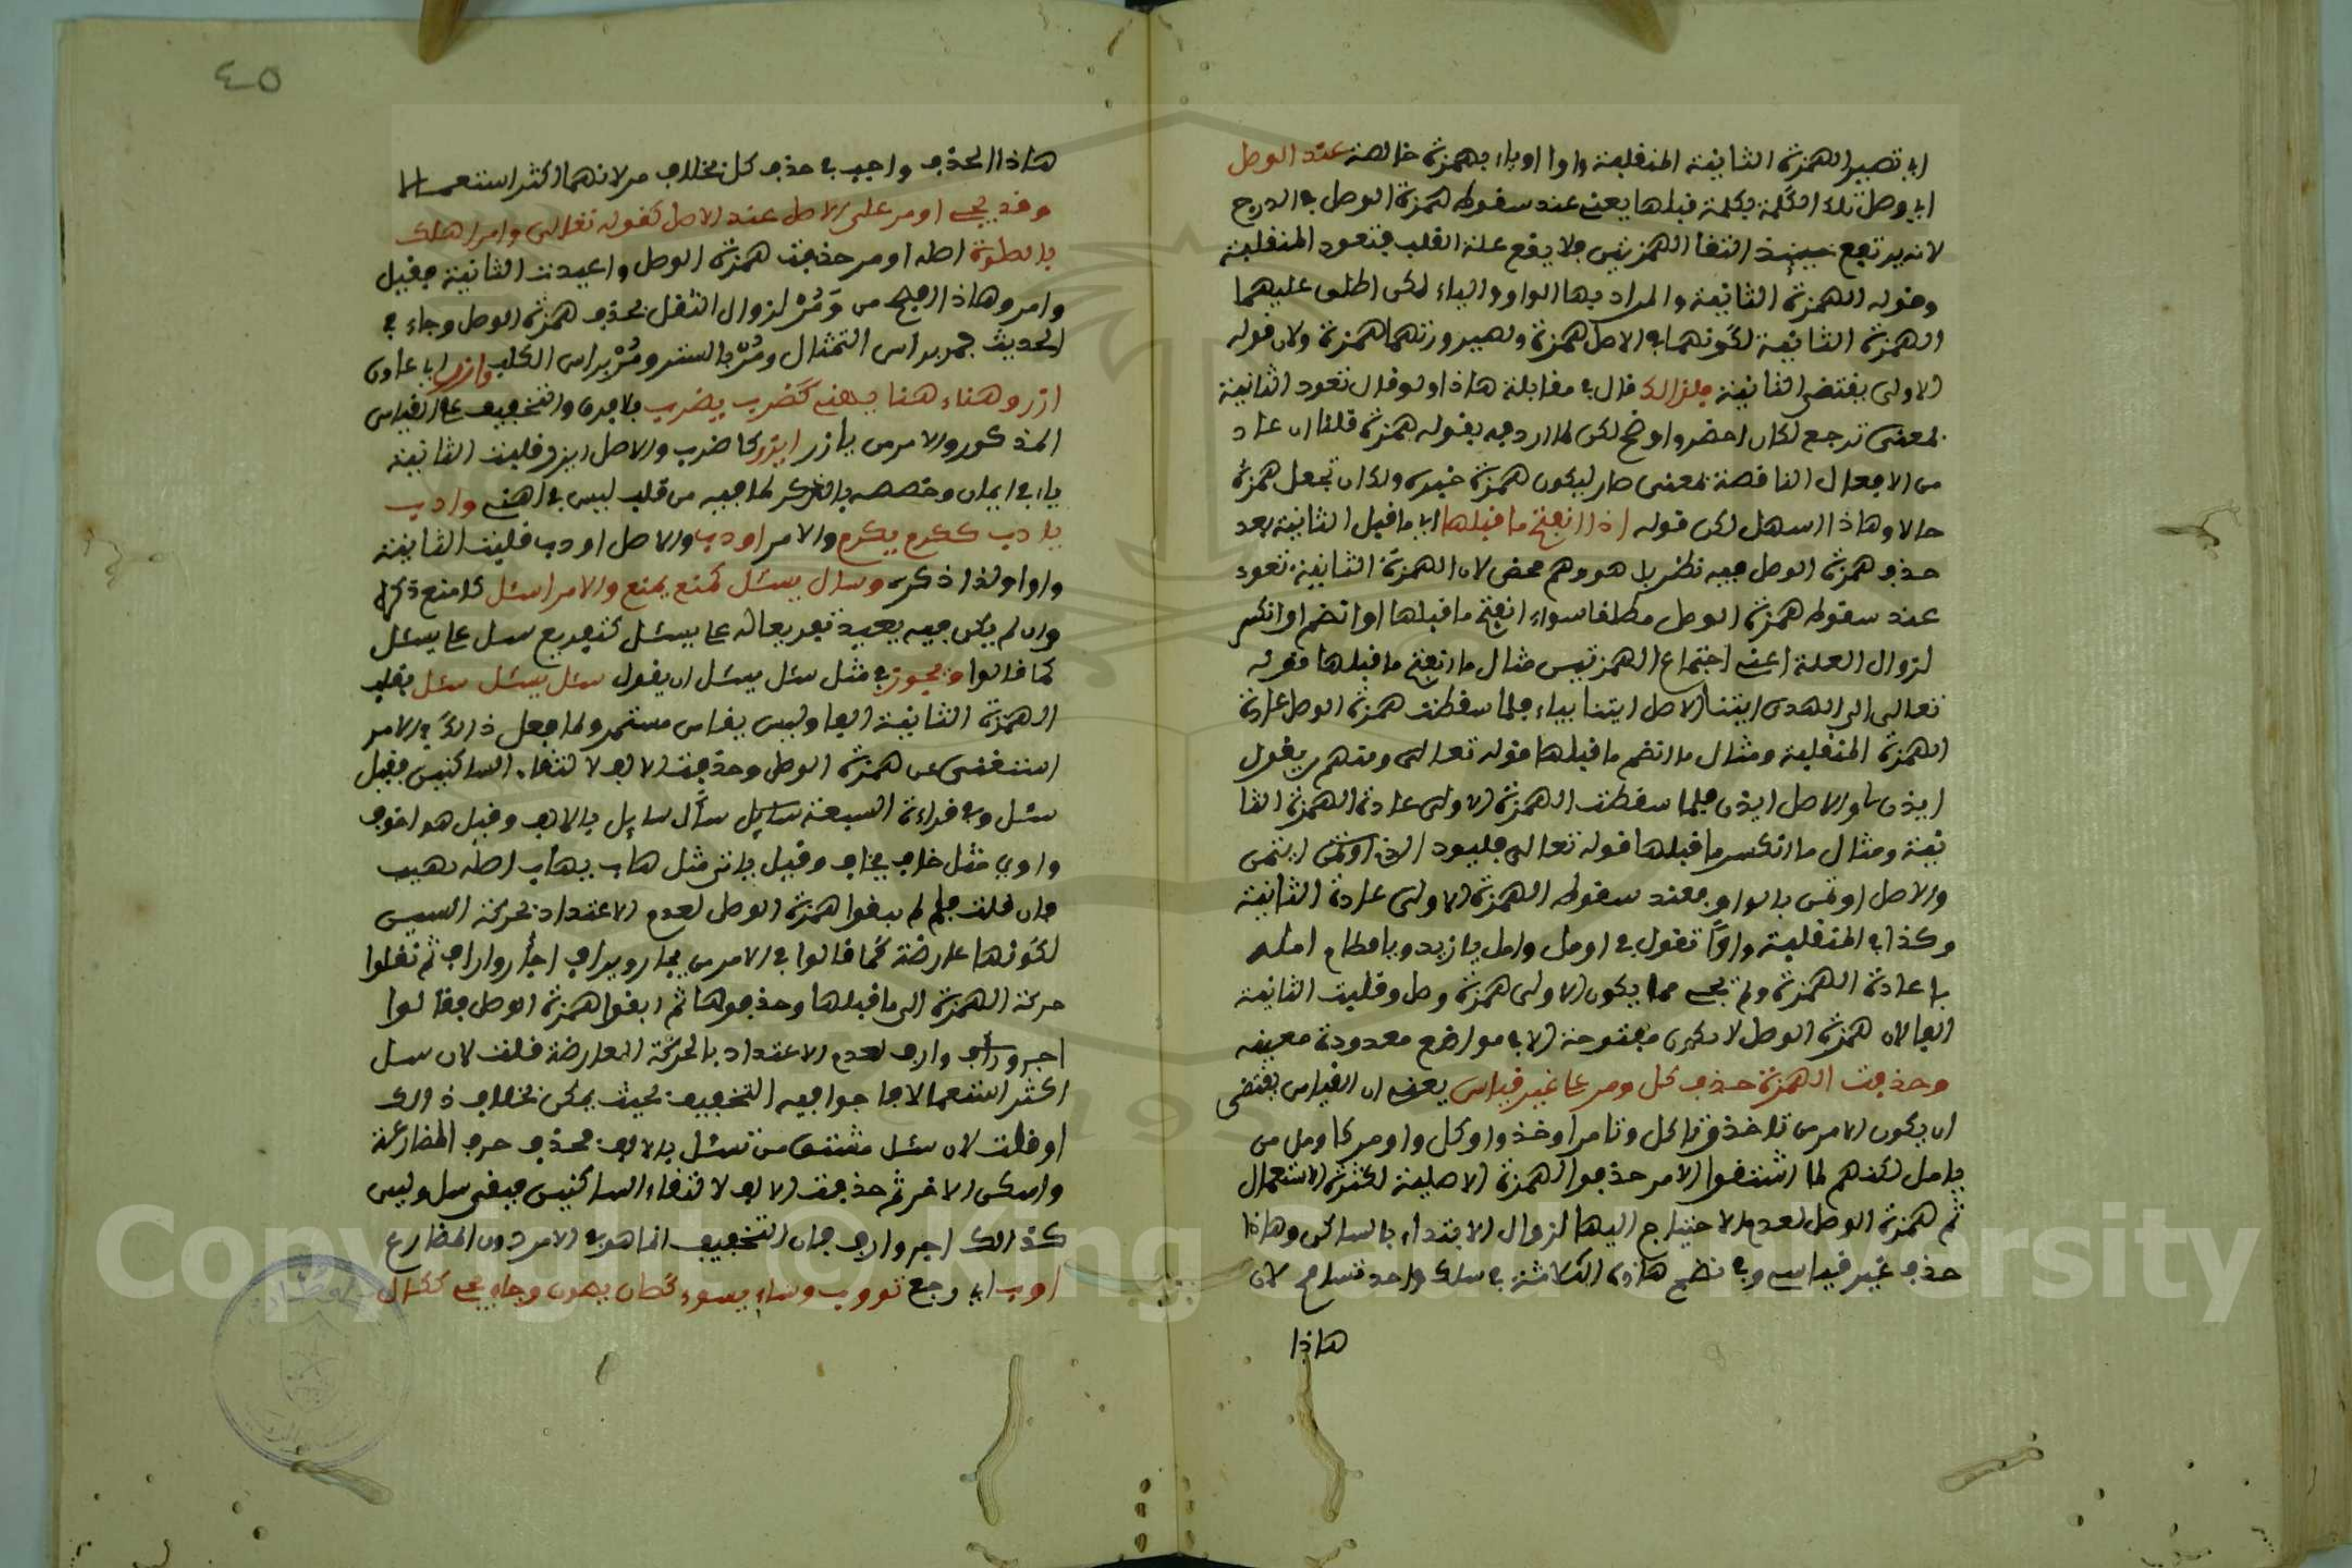 اي تصير الهمزة الثانية المنقلبة واوا او ياء بهمزة خالصة عند الوصل
اي وصل تلك الكلمة بكلمة قبلها يعني عند سقوط همزة الوصل في الدرج
لانه يرتفع حينئذ التقا الهمزتين فلا يقع علة القلب فتعود المنقلبة
وقوله الهمزة الثانية والمراد بها الواو والياء لكن اطلق عليهما
الهمزة الثانية لكونهما في الاصل همزة ولصيرورتهما همزة ولان قوله
الاولى يقتضي الثانية فلذالك قال في مقابلة هاذا ولو قال تعود الثانية
بمعنى ترجع لكان اخصر واوضح لكن لما اردفه بقوله همزة قلنا ان عاد
من الافعال الناقصة بمعنى صار ليكون همزة خبره ولك ان تجعل همزة
حالا وهاذا اسهل لكن قوله اذا انفتح ما قبلها اي ما قبل الثانية بعد
حذف همزة الوصل فيه نظر بل هو وهم محض لان الهمزة الثانية تعود
عند سقوط همزة الوصل مطلقا سواء انفتح ما قبلها او انضم او انكسر
لزوال العلة اعني اجتماع الهمزتين مثال ما انفتح ما قبلها قوله
تعالى الى الهدى ايتنا الاصل ايتنا بياء فلما سقطت همزة الوصل عادة
الهمزة المنقلبة ومثال ما انضم ما قبلها قوله تعالى ومنهم من يقول
ايذن لي والاصل ايذن فلما سقطت الهمزة الاولى عادة الهمزة الثا
نية ومثال ما انكسر ما قبلها قوله تعالى فليود الذي اوتمن
والاصل اوتمن بالواو فعند سقوط الهمزة الاولى عادة الثانية
وكذا في المنقلبة واوا تقول في اومل وامل يا زيد ويا قطام امل
باعادة الهمزة ولم يجي مما يكون الاولى همزة وصل وقلبت الثانية
الفا لان همزة الوصل لا تكون مفتوحة الا في مواضع معدودة معينه
وحذفت الهمزة حذف كل ومر على غير قياس يعني ان القياس يقتضي
ان يكون الامر من تاخذ وتاكل وتامر اوخذ واوكل واومر كاومل من
يامل لكنهم لما اشتقوا الامر حذفوا الهمزة الاصلية لكثرة الاستعمال
ثم همزة الوصل لعدم الاحتياج اليها لزوال الابتداء بالساكن وهاذا
حذف غير قياسي وفي نظم هاذه الثلاثة في سلك واحد تسامح لان
هاذا
٤٥
هاذا الحذف واجب في حذف كل بخلاف مر لانهما اكثر استعمالا
وقد يجي اومر على الاصل عند الاصل كقوله تعالى وامر اهلك
بالصلوة اصله اومر حذفت همزة الوصل واعيدت الثانية فقيل
وامر وهاذا افصح من وَمُرْ لزوال الثقل بحذف همزة الوصل وجاء في
الحديث فمر براس التمثال ومُرْ بالستر ومُرْ براس الكلب وازر اي عاون
ازر وهناء هنا يهنى كضرب يضرب بلا فرق والتخفيف على القياس
المذكور والامر من يازر ايزر كاضرب والاصل ازر وقلبت الثانية
ياء في ايمان وخصصه بالذكر لما فيه من قلب ليس في اهنى وادب
يادب ككرم يكرم والامر اودب والاصل اودب قلبت الثانية
واوا ولذا ذكره وسال يسئل كمنع يمنع والامر اسئل كامنع ذكره
وان لم يكن فيه بعيد تفريعا له على يسئل كتفريع سل على يسئل
كما قالوا ويجوز في مثل سئل يسئل ان يقول سئل يسئل سئل بقلب
الهمزة الثانية الفا وليس بقياس مستمر ولما فعل ذالك في الامر
استغنى عن همزة الوصل وحذفت الالف لالتقاء الساكنين فقيل
سئل وفي قراءة السبعة سايل سأل سايل بالالف وقيل هو اخوف
واوي مثل خاف يخاف وقيل يائي مثل هاب يهاب اصله يهيب
فان قلت فلم لم يبقوا همزة الوصل لعدم الاعتداد بحركة السين
لكونها عارضة كما قالوا في الامر من يجار ويراف اجأر واراف ثم نقلوا
حركة الهمزة الى ما قبلها وحذفوها ثم ابقوا همزة الوصل فقالوا
اجر وارف لعدم الاعتداد بالحركة العارضة قلت لان سل
اكثر استعمالا فاحبوا فيه التخفيف بحيث يمكن بخلاف ذالك
او قلت لان سئل مشتق من تسئل بالالف فحذف حرف المضارعة
واسكن الاخر ثم حذفت الالف لالتقاء الساكنين فبقي سل وليس
كذالك اجر وارف فان التخفيف انما هو في الامر دون المضارع
اوب اي رجع تووب وساء يسوء كصان يصون وجاء يجي ككال